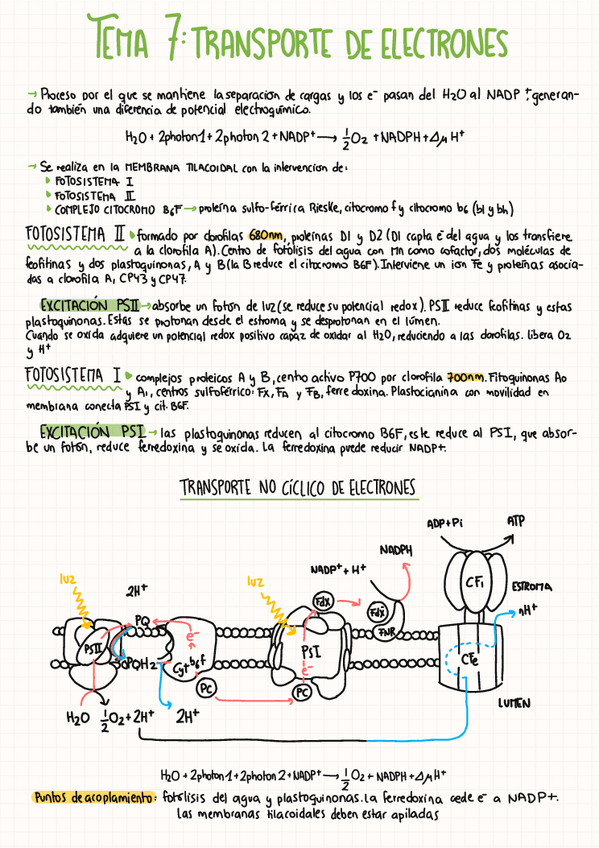 TEMA 7: TRANSPORTE DE ELECTRONES
→ Proceso por el que se mantiene la separación de cargas y los e⁻ pasan del H₂O al NADP⁺, generan-
do también una diferencia de potencial electroquímico.
H₂O + 2photon1 + 2photon 2 + NADP⁺ ⟶ 1/2 O₂ + NADPH + Δμ H⁺
→ Se realiza en la MEMBRANA TILACOIDAL con la intervención de:
FOTOSISTEMA I
FOTOSISTEMA II
COMPLEJO CITOCROMO B6F → proteína sulfo-férrica Rieske, citocromo f y citocromo b6 (bl y bh)
FOTOSISTEMA II formado por clorofilas 680nm, proteínas D1 y D2 (D1 capta e⁻ del agua y los transfiere
a la clorofila A). Centro de fotólisis del agua con Mn como cofactor, dos moléculas de
feofitinas y dos plastoquinonas, A y B (la B reduce el citocromo B6F). Interviene un ion Fe y proteínas asocia-
das a clorofila A, CP43 y CP47.
EXCITACIÓN PSII → absorbe un fotón de luz (se reduce su potencial redox). PSII reduce feofitinas y estas
plastoquinonas. Estas se protonan desde el estroma y se desprotonan en el lúmen.
Cuando se oxida adquiere un potencial redox positivo capaz de oxidar al H₂O, reduciendo a las clorofilas. libera O2
y H⁺
FOTOSISTEMA I complejos proteicos A y B, centro activo P700 por clorofila 700nm. Fitoquinonas A0
y A1, centros sulfoférrico: Fx, FA y FB, ferredoxina. Plastocianina con movilidad en
membrana conecta PSI y cit. B6F.
EXCITACIÓN PSI → las plastoquinonas reducen al citocromo B6F, este reduce al PSI, que absor-
be un fotón, reduce ferredoxina y se oxida. La ferredoxina puede reducir NADP+.
TRANSPORTE NO CÍCLICO DE ELECTRONES
ADP+Pi
ATP
NADPH
NADP⁺ + H⁺
luz
luz
2H⁺
CF1
ESTROMA
nH⁺
Fdx
Fdx
FNR
PQ
e⁻
PSII
PQH2
Cyt b6f
PSI
e⁻
PC
PC
LUMEN
H₂O
1/2 O₂ + 2H⁺
2H⁺
H₂O + 2photon1 + 2photon2 + NADP⁺ ⟶ 1/2 O₂ + NADPH + Δμ H⁺
Puntos de acoplamiento: fotólisis del agua y plastoquinonas. La ferredoxina cede e⁻ a NADP+.
las membranas tilacoidales deben estar apiladas